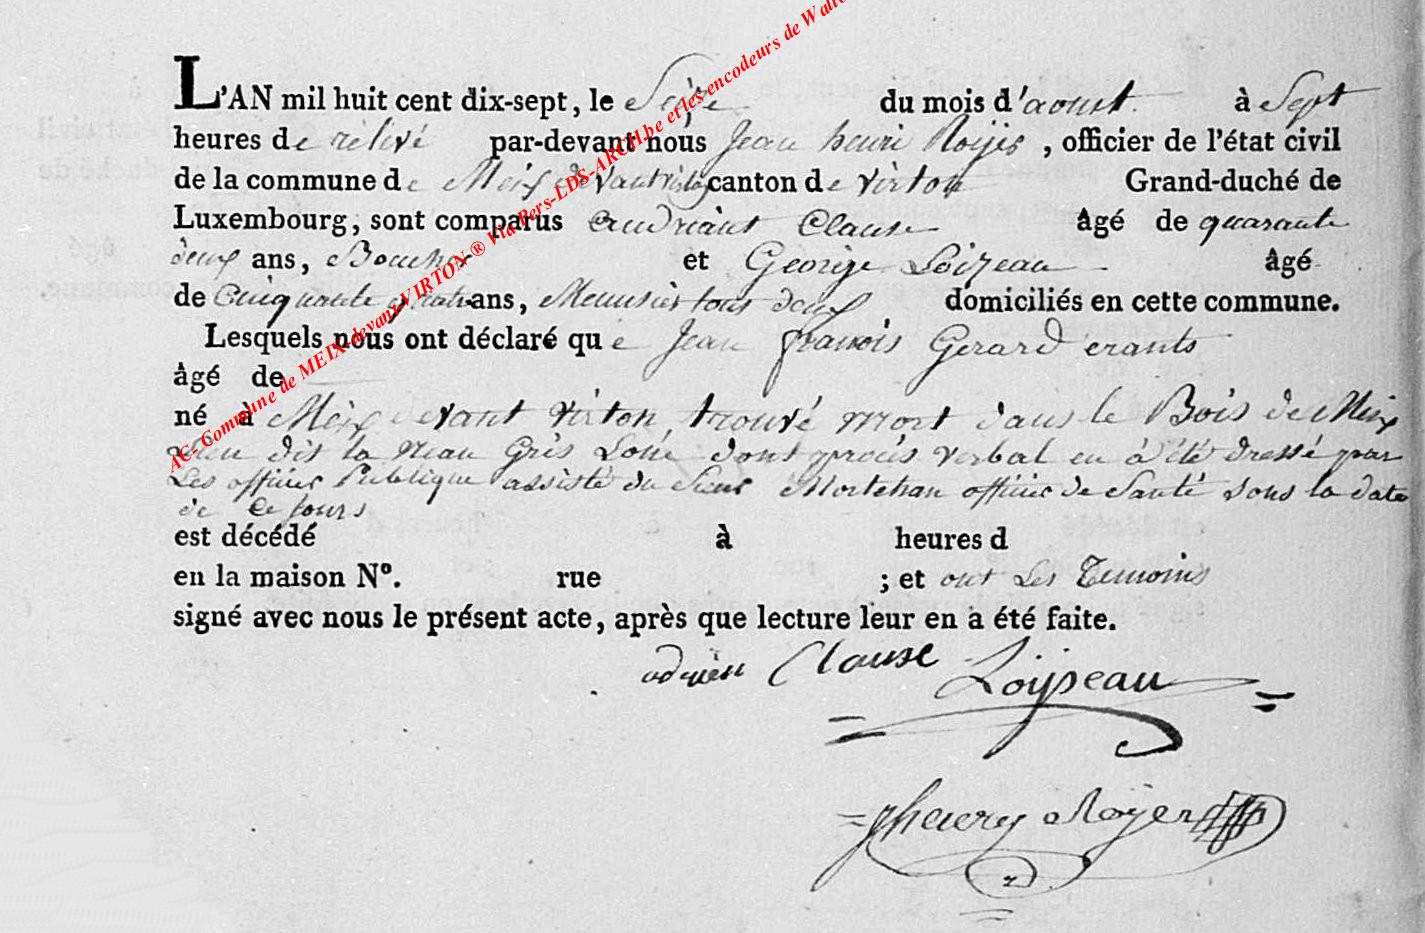 L'AN mil huit cent dix-sept, le Seize du mois d'aoust à Sept
heures de rélévé par-devant nous Jean henri Roijer, officier de l'état civil
de la commune de Meix devant virton canton de virton Grand-duché de
Luxembourg, sont comparus andriant Clause âgé de quarante
deux ans, Boucher et George Loizeau âgé
de Cinquante quatre ans, Meunsier tous deux domiciliés en cette commune.
Lesquels nous ont déclaré que Jean franois Gerard erants
âgé de
né à Meix devant virton, trouvé mort dans le Bois de Meix
Lieu dit la Gris dont procès verbal en à été dressé par
Les officier Publique assisté du Sieur Mortehan officier de Santé sous la date
de Ce jours
est décédé à heures d
en la maison N°. rue ; et ont Les Temoins
signé avec nous le présent acte, après que lecture leur en à été faite.
adrien Clause Loijseau
jhenry Roÿer
AC- Commune de MEIX-devant-VIRTON ® Via Pers-LDS-ARCH.be et les encodeurs de